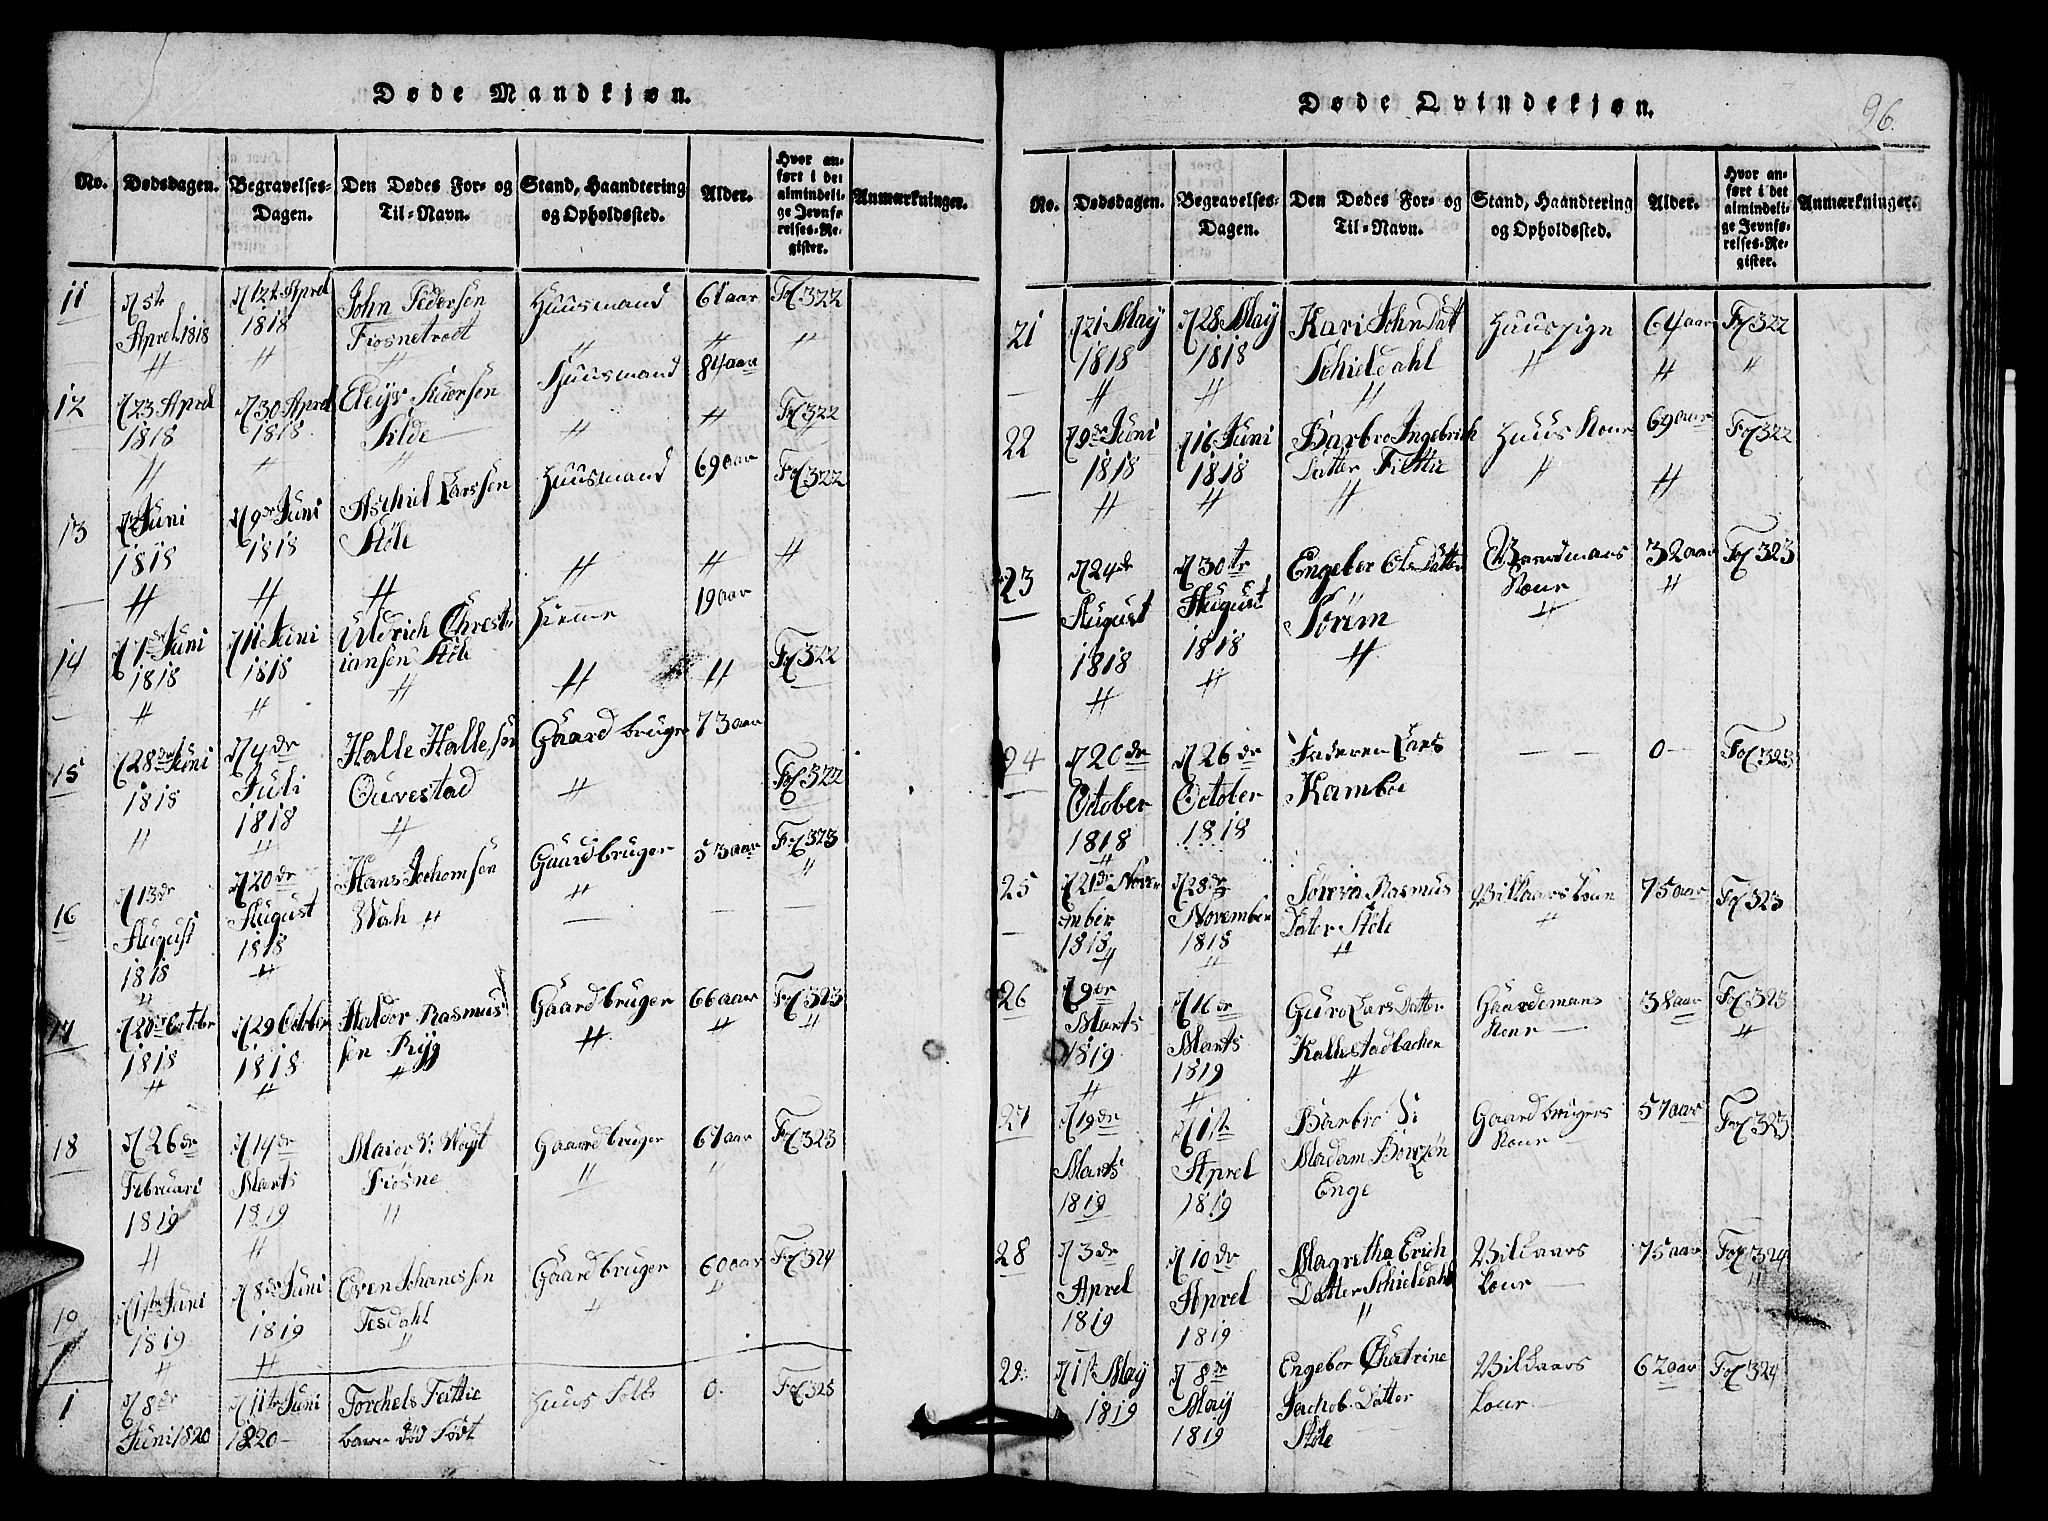 Døde Mandkjøn.
No. Dødsdagen. Begravelses-Dagen. Den Dødes For- og Til-Navn. Stand, Haandtering og Opholdssted. Alder. Hvor anført i det almindelige Jevnførelses-Register. Anmærkninger.
11 d 5te Aprel 1818 d 12te Aprel 1818 John Pedersen Fiosnetrodt Huusmand 61 aar Fol 322
12 d 23 Aprel 1818 d 30 Aprel 1818 Huusmand 84 aar Fol 322
13 Juni 1818 d 9de Juni 1818 Aschiel Larssen Støle Huusmand 69 aar Fol 322
14 Juni 1818 d 11 Juni 1818 Uldrich Christiansen Støle 19 aar Fol 322
15 d 28de Juni 1818 d 4de Juli 1818 Halle Hallesen Ouvestad Gaardbruger 73 aar Fol 322
16 d 13de August 1818 d 20de August 1818 Hans Jochomsen Wah Gaardbruger 53 aar Fol 323
17 d 20de October 1818 d 29 October 1818 Haldor Rasmussen Ryg Gaardbruger 66 aar Fol 323
18 d 26de Februari 1819 d 14de Marts 1819 Maier V: Fiosne Gaardbruger 67 aar Fol 323
19 Juni 1819 d 8de Juni 1819 Even Johanessen Tesdahl Gaardbruger 60 aar Fol 324
1 d 8de Juni 1820 d 11te Juni 1820 Torchels Fettie barn død Født Huus Folk 0. Fol 325
Døde Qvindekjøn.
96.
No. Dødsdagen. Begravelses-Dagen. Den Dødes For- og Til-Navn. Stand, Haandtering og Opholdssted. Alder. Hvor anført i det almindelige Jevnførelses-Register. Anmærkninger.
21 d 21 May 1818 d 28 May 1818 Kari John Datt Schieldahl Huuspige 64 aar Fol 322
22 d 9de Juni 1818 d 16 Juni 1818 Barbro Ingebrich Datter Fettie Huus Kone 69 aar Fol 322
23 d 24de August 1818 d 30te August 1818 Engeber Ols Datter Sørem Kone 32 aar Fol 323
24 d 20de October 1818 d 26de October 1818 Faderen Lars Kambe 0 Fol 323
25 d 21de November 1818 d 28de November 1818 Rasmus Dater Støle Vilkaars Kone 75 aar Fol 323
26 d 9de Marts 1819 d 16de Marts 1819 Guro Lars Datter Kallestadbacken Gaardemans Kone 38 aar Fol 323
27 d 19de Marts 1819 d 1ste Aprel 1819 Barbro Madam Enge Gaardbrugers Kone 57 aar Fol 323
28 d 3de Aprel 1819 d 10de Aprel 1819 Magretha Erich Datter Schieldahl Vilkaars Kone 75 aar Fol 324
29. d 1ste May 1819 d 8de May 1819 Engebor Chatrine Jachob Datter Støle Vilkaars Kone 62 aar Fol 324